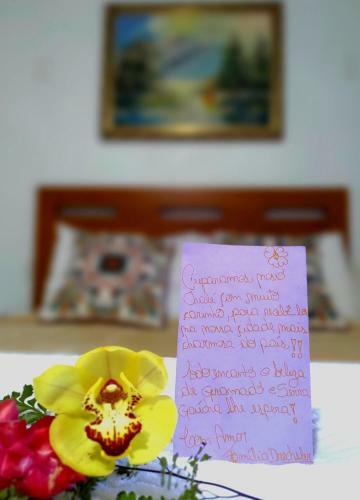 Preparamos, nosso
Chalé com muito
carinho, para recebê-los
na nossa cidade mais
charmosa do país!!
Todo encanto e beleza
de gramado e Serra
gaúcha lhe espera!
Com, Amor
Família